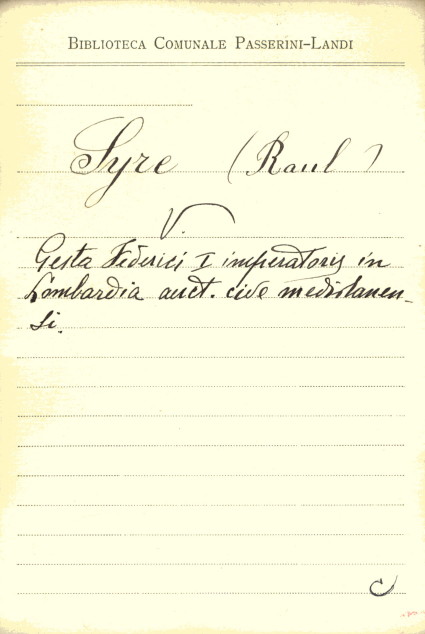 BIBLIOTECA COMUNALE PASSERINI-LANDI
Syre (Raul)
V.
Gesta Federici I imperatoris in
Lombardia auct. cive mediolanen-
si.
C